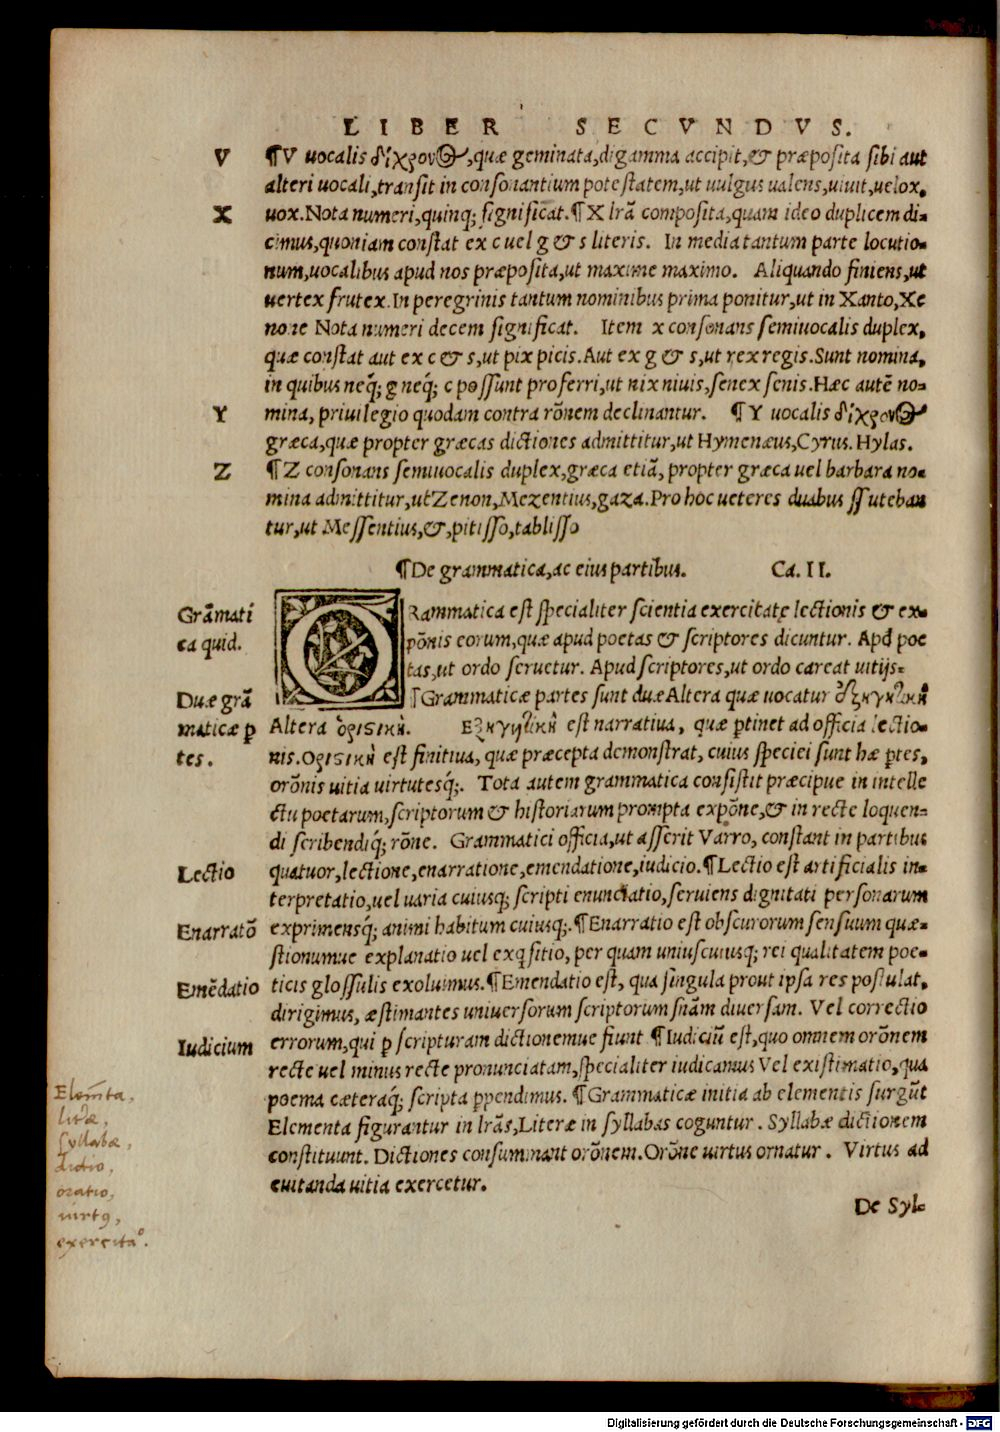 LIBER SECVNDVS.
V
¶V uocalis δίχρονος, quæ geminata, digamma accipit, & præposita sibi aut
alteri uocali, transit in consonantium potestatem, ut uulgus ualens, uiuit, uelox,
X
uox. Nota numeri, quinq; significat. ¶X lr̃a composita, quam ideo duplicem di-
cimus, quoniam constat ex c uel g & s literis. In media tantum parte locutio-
num, uocalibus apud nos præposita, ut maxime maximo. Aliquando finiens, ut
uertex frutex. In peregrinis tantum nominibus prima ponitur, ut in Xanto, Xe
none Nota numeri decem significat. Item x consonans semiuocalis duplex,
quæ constat aut ex c & s, ut pix picis. Aut ex g & s, ut rex regis. Sunt nomina,
in quibus neq́; g neq́; c possunt proferri, ut nix niuis, senex senis. Hæc autẽ no-
Y
mina, priuilegio quodam contra rõnem declinantur. ¶Y uocalis δίχρονος
græca, quæ propter græcas dictiones admittitur, ut Hymenæus, Cyrus. Hylas.
Z
¶Z consonans semiuocalis duplex, græca etiã, propter græca uel barbara no-
mina admittitur, ut Zenon, Mezentius, gaza. Pro hoc ueteres duabus ss uteban
tur, ut Messentius, &, pitisso, tablisso
¶De grammatica, ac eius partibus. Ca. II.
Grãmati
ca quid.
GRammatica est specialiter scientia exercitatę lectionis & ex-
põnis eorum, quæ apud poetas & scriptores dicuntur. Apd poe
tas, ut ordo seruetur. Apud scriptores, ut ordo careat uitijs-
Duæ grã
maticæ ꝑ
tes.
¶Grammaticæ partes sunt duæ Altera quæ uocatur
Altera ὁριστικὴ. Εξηγητικὴ est narratiua, quæ ꝑtinet ad officia lectio-
nis. Οριστικὴ est finitiua, quæ præcepta demonstrat, cuius speciei sunt hæ ꝑtes,
orõnis uitia uirtutesq́;. Tota autem grammatica consistit præcipue in intelle
ctu poetarum, scriptorum & historiarum prompta expõne, & in recte loquen-
di scribendiq́; rõne. Grammatici officia, ut asserit Varro, constant in partibus
Lectio
quatuor, lectione, enarratione, emendatione, iudicio. ¶Lectio est artificialis in-
terpretatio, uel uaria cuiusq; scripti enunciatio, seruiens dignitati personarum
Enarratõ
exprimensq́; animi habitum cuiusq;. ¶Enarratio est obscurorum sensuum quæ-
stionumue explanatio uel exqsitio, per quam uniuscuiusq; rei qualitatem poe-
Emẽdatio
ticis glossulis exoluimus. ¶Emendatio est, qua singula prout ipsa res postulat,
dirigimus, æstimantes uniuersorum scriptorum sñãm diuersam. Vel correctio
Iudicium
errorum, qui ꝑ scripturam dictionemue fiunt ¶Iudiciũ est, quo omnem orõnem
recte uel minus recte pronunciatam, specialiter iudicamus Vel existimatio, qua
poema cæteraq́; scripta ꝑpendimus. ¶Grammaticæ initia ab elementis surgũt
Elementa figurantur in lr̃as, Literæ in syllabas coguntur. Syllabæ dictionem
constituunt. Dictiones consummant orõnem. Orõne uirtus ornatur. Virtus ad
euitanda uitia exercetur.
Elem̃ta,
lit̃æ,
syllabæ,
dictio,
oratio,
uirtꝰ,
exercita°.
De Syl-
Digitalisierung gefördert durch die Deutsche Forschungsgemeinschaft - DFG